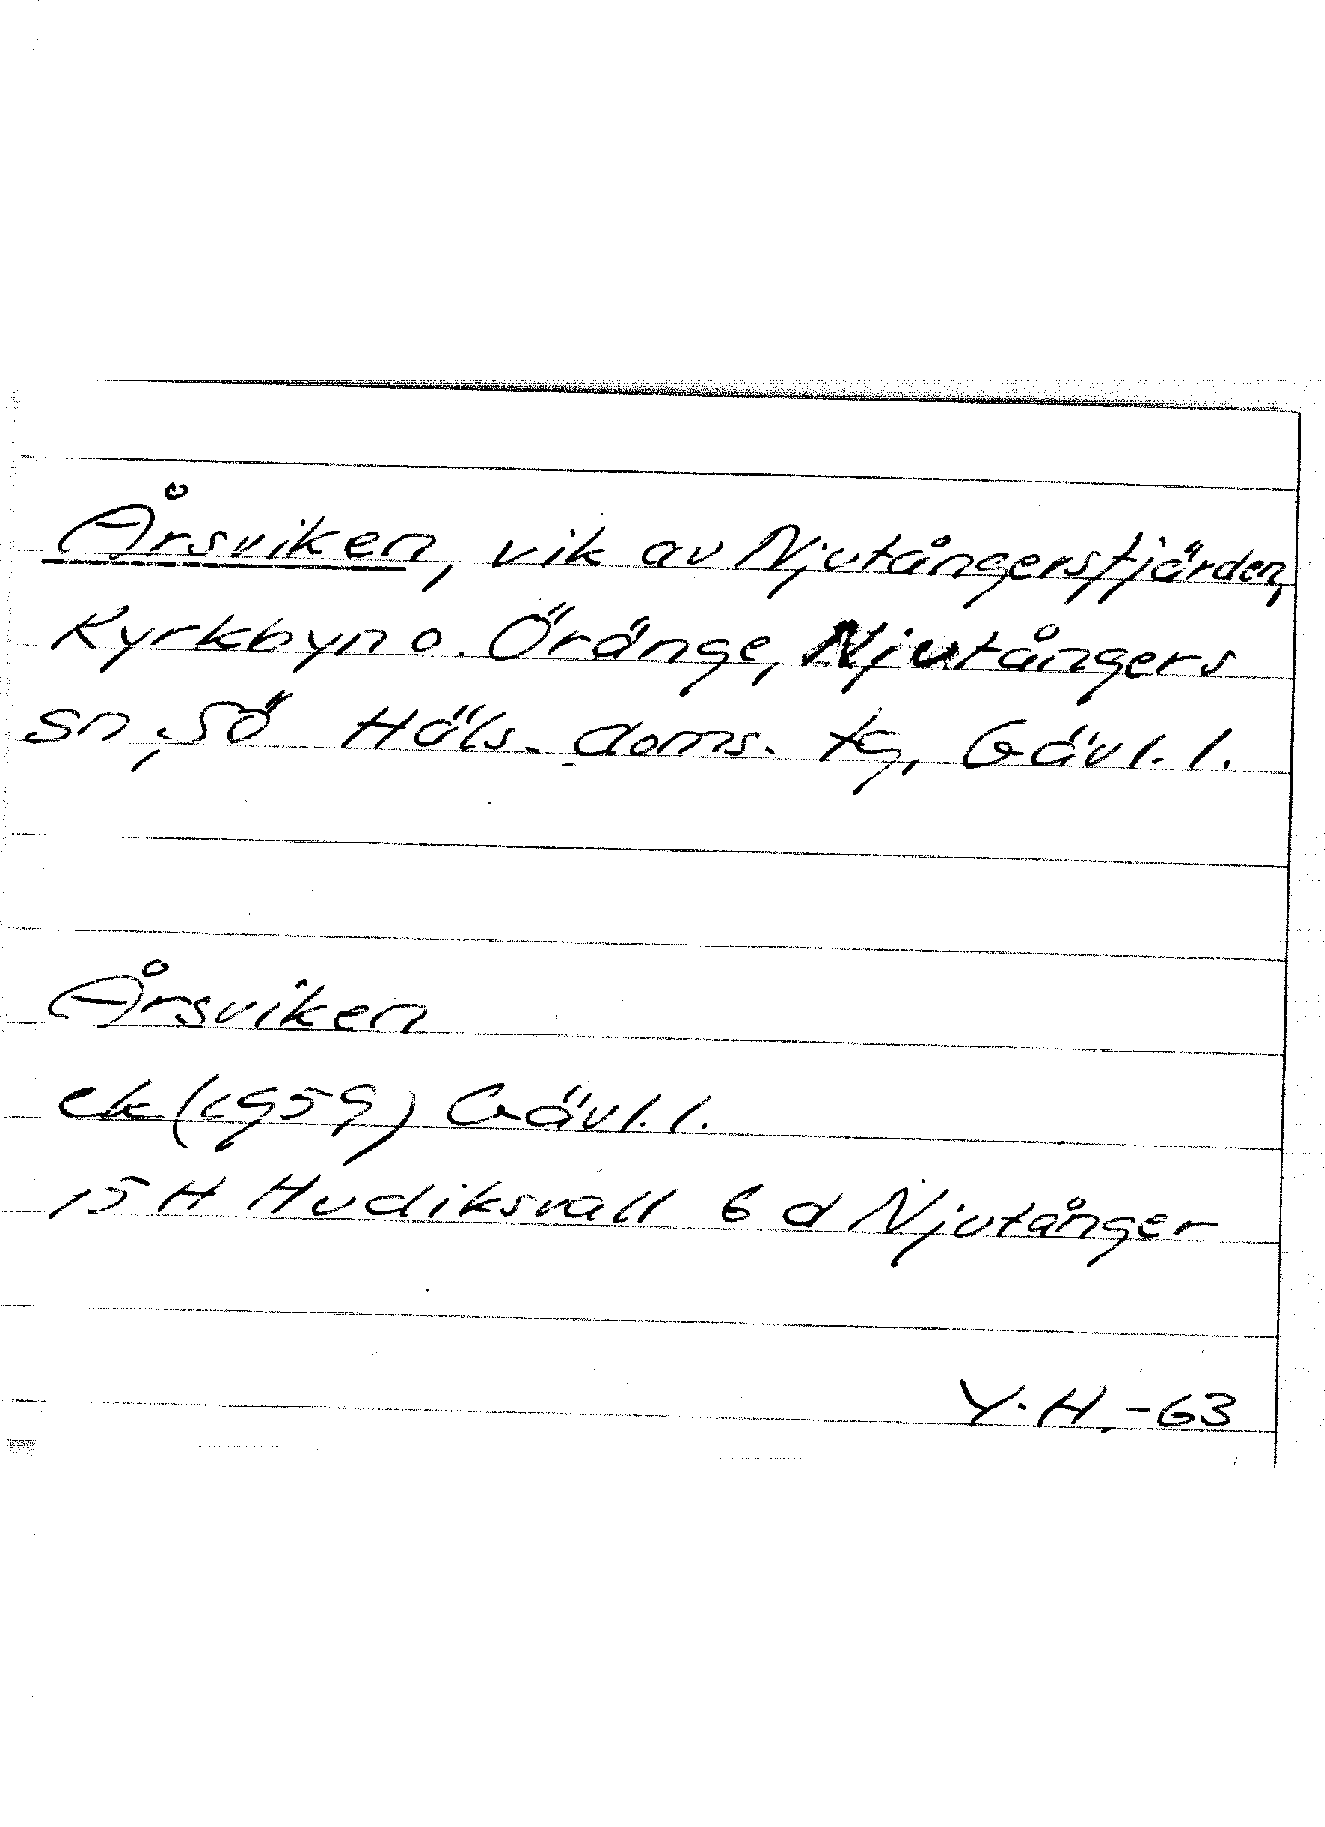 Årsviken, vik av Njutångersfjärden,
Kyrkbyn o. Öränge, Njutångers
sn, Sö Häls. doms. tg, Gävl. l.
Årsviken
ek (1959) Gävl. l.
15 H Hudiksvall 6 d Njutånger
Y. H. -63